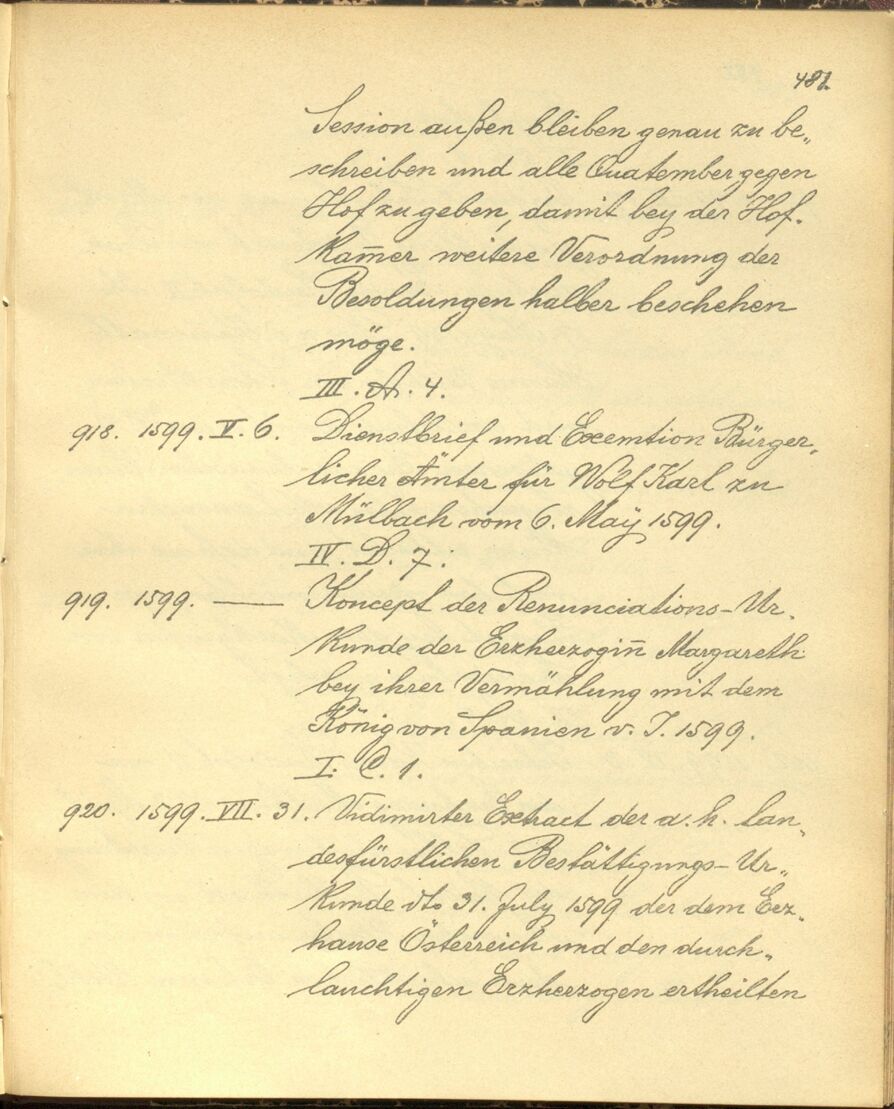 481.
Session außen bleiben genau zu be„
schreiben und alle Quatember gegen
Hof zu geben, damit bey der Hof-
kam̄er weitere Verordnung der
Besoldungen halber beschehen
möge.
III. A. 4.
918. 1599. V. 6. Dienstbrief und Exemtion Bürger„
licher Ämter für Wolf Karl zu
Mülbach vom 6. Maÿ 1599.
IV. D. 7.
919. 1599. — Koncept der Renunciations-Ur„
kunde der Erzherzogin̄ Margareth
bey ihrer Vermählung mit dem
König von Spanien v. J. 1599.
I. C. 1.
920. 1599. VII. 31. Vidimirter Extract der a. h. lan„
desfürstlichen Bestättigungs-Ur„
kunde dto 31. July 1599 der dem Erz„
hause Österreich und den durch„
lauchtigen Erzherzogen ertheilten